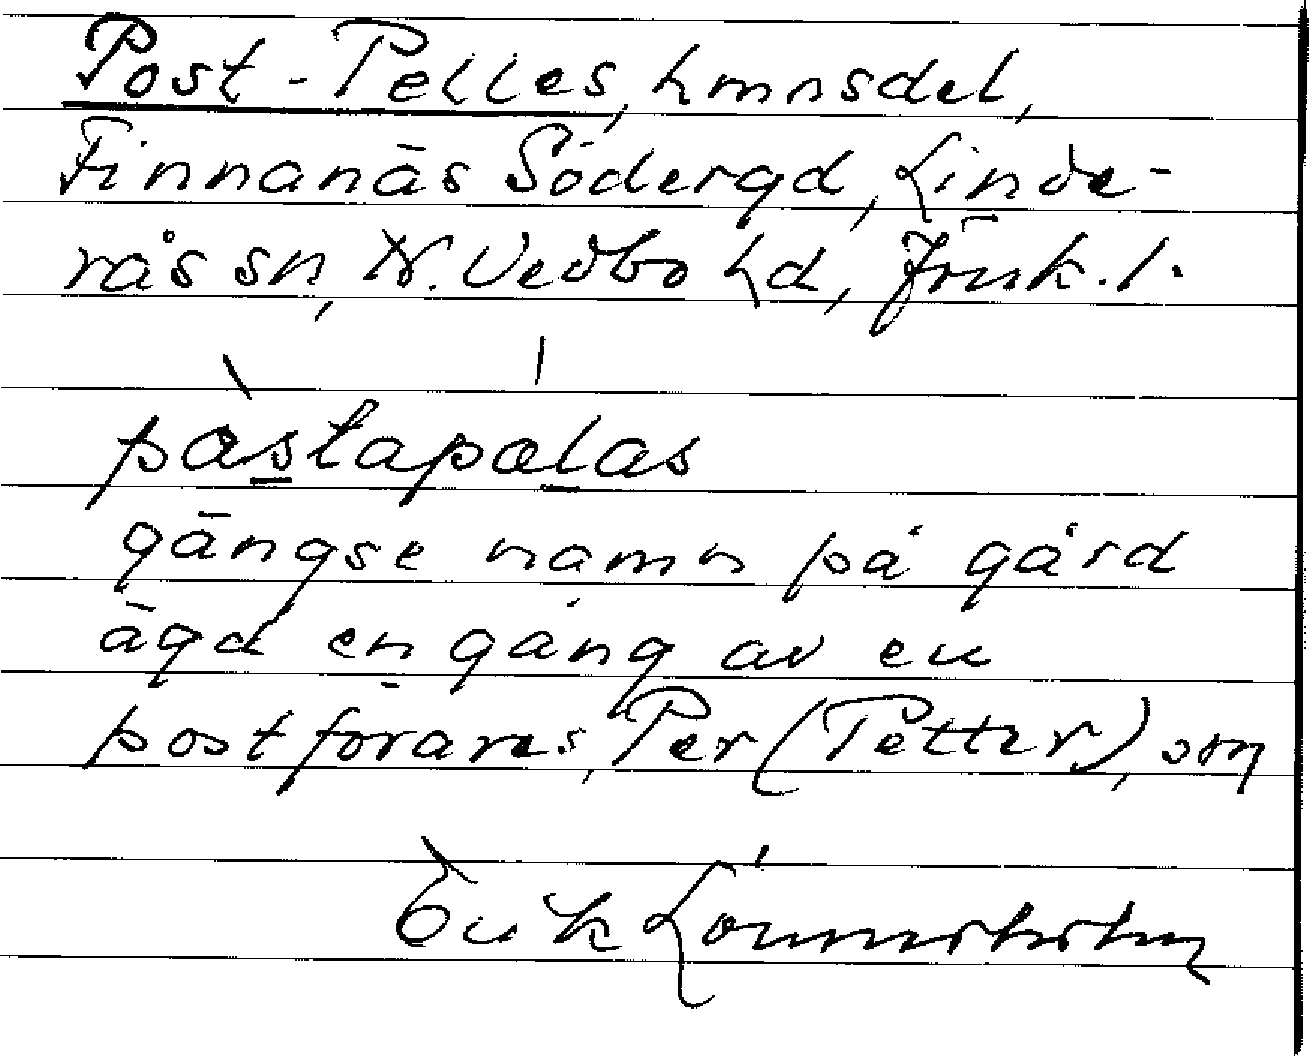 Post-Pelles, hmnsdel,
Finnanäs Södergd, Linde-
rås sn, N. Vedbo hd, Jönk. l.
pàstapælas
gängse namn på gård
ägd en gång av en
postförare, Per (Petter), son
Erik Lönnerholm